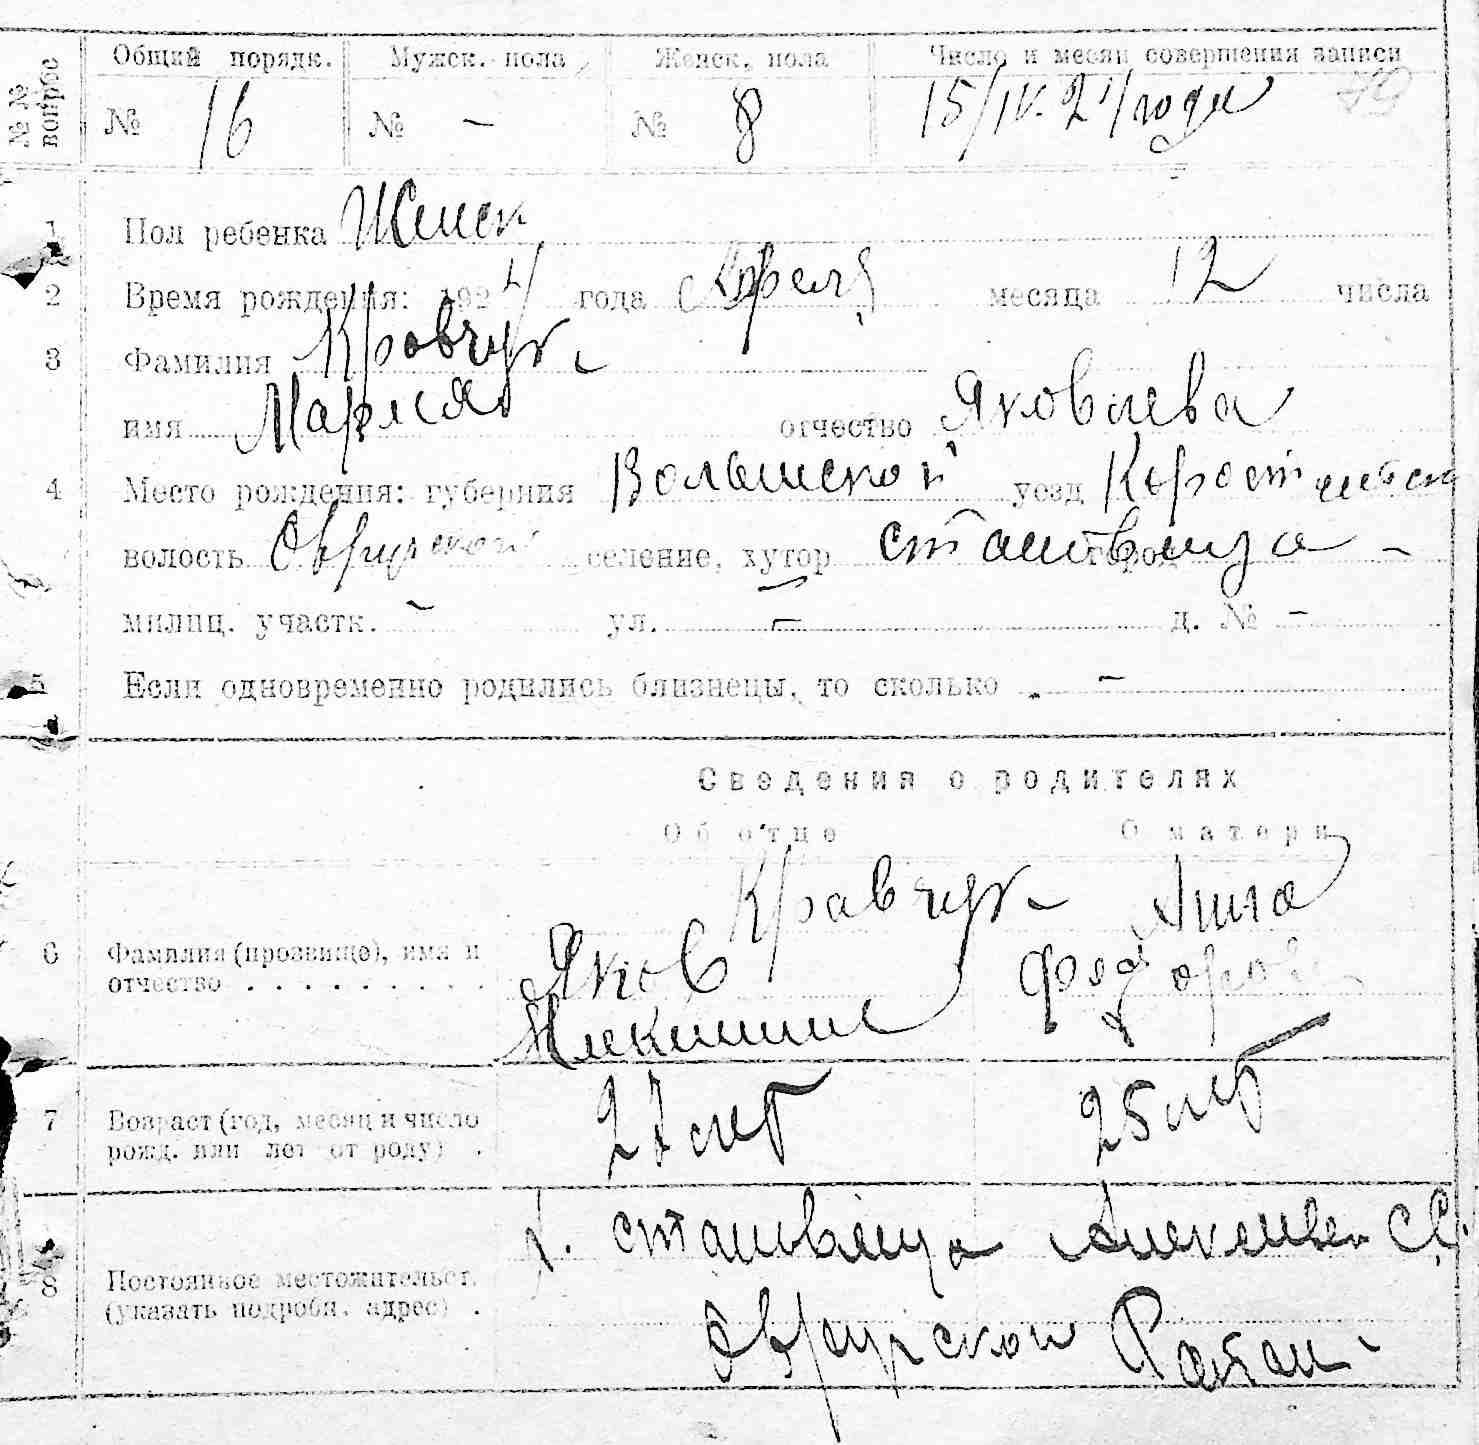 №№ вопрос
Общий порядк. Мужск. пола Женск. пола Число и месяц совершения записи
№ 16 № - № 8 15/IV. 24 года 79
1 Пол ребенка Женск
2 Время рождения: 1924 года Апреля месяца 12 числа
3 Фамилия Кравчук
имя Мария отчество Яковлева
4 Место рождения: губерния Волынской уезд Коростенск
волость Овручской селение, хутор Становище -
милиц. участк. - ул. - д. № -
5 Если одновременно родились близнецы, то сколько -
Сведения о родителях
Об отце О матери
Кравчук Анна
6 Фамилия (прозвище), имя и Яков Федоров
отчество . . . . . . . . .
7 Возраст (год, месяц и число 27 лет 25 лет
рожд. или лет от роду) .
х. Становище СС
8 Постоянное местожительст.
(указать подробн. адрес) . Овручской Район